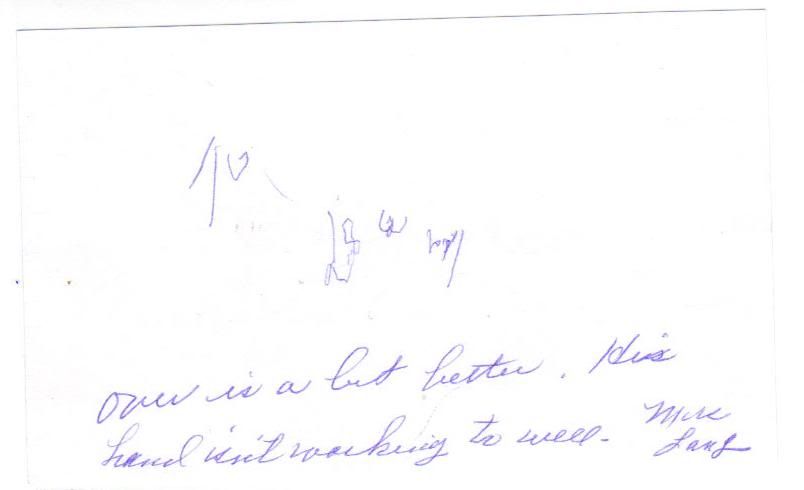 over is a bit better. His
hand isn't working to well-
Mrs
Lang